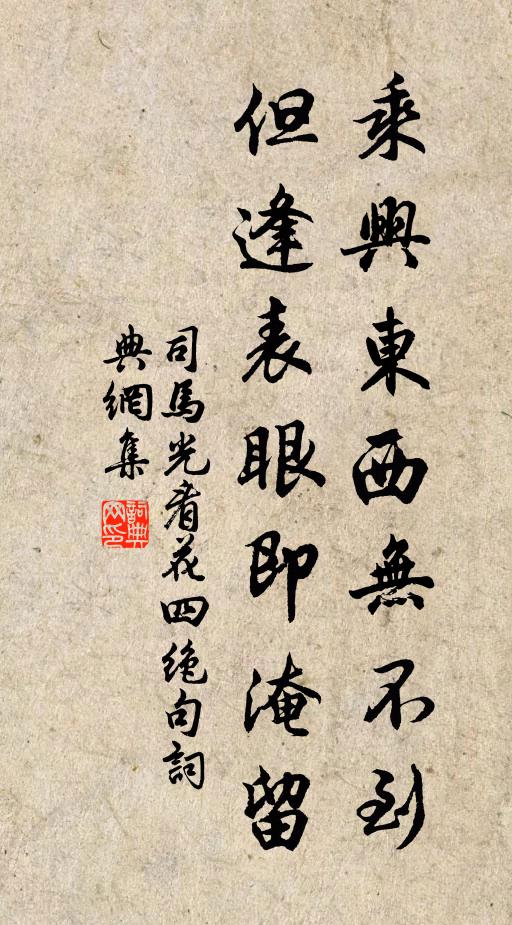 乘興東西無不到
但逢表眼即淹留
司馬光看花四絶句詞
典網集
詞典
网印